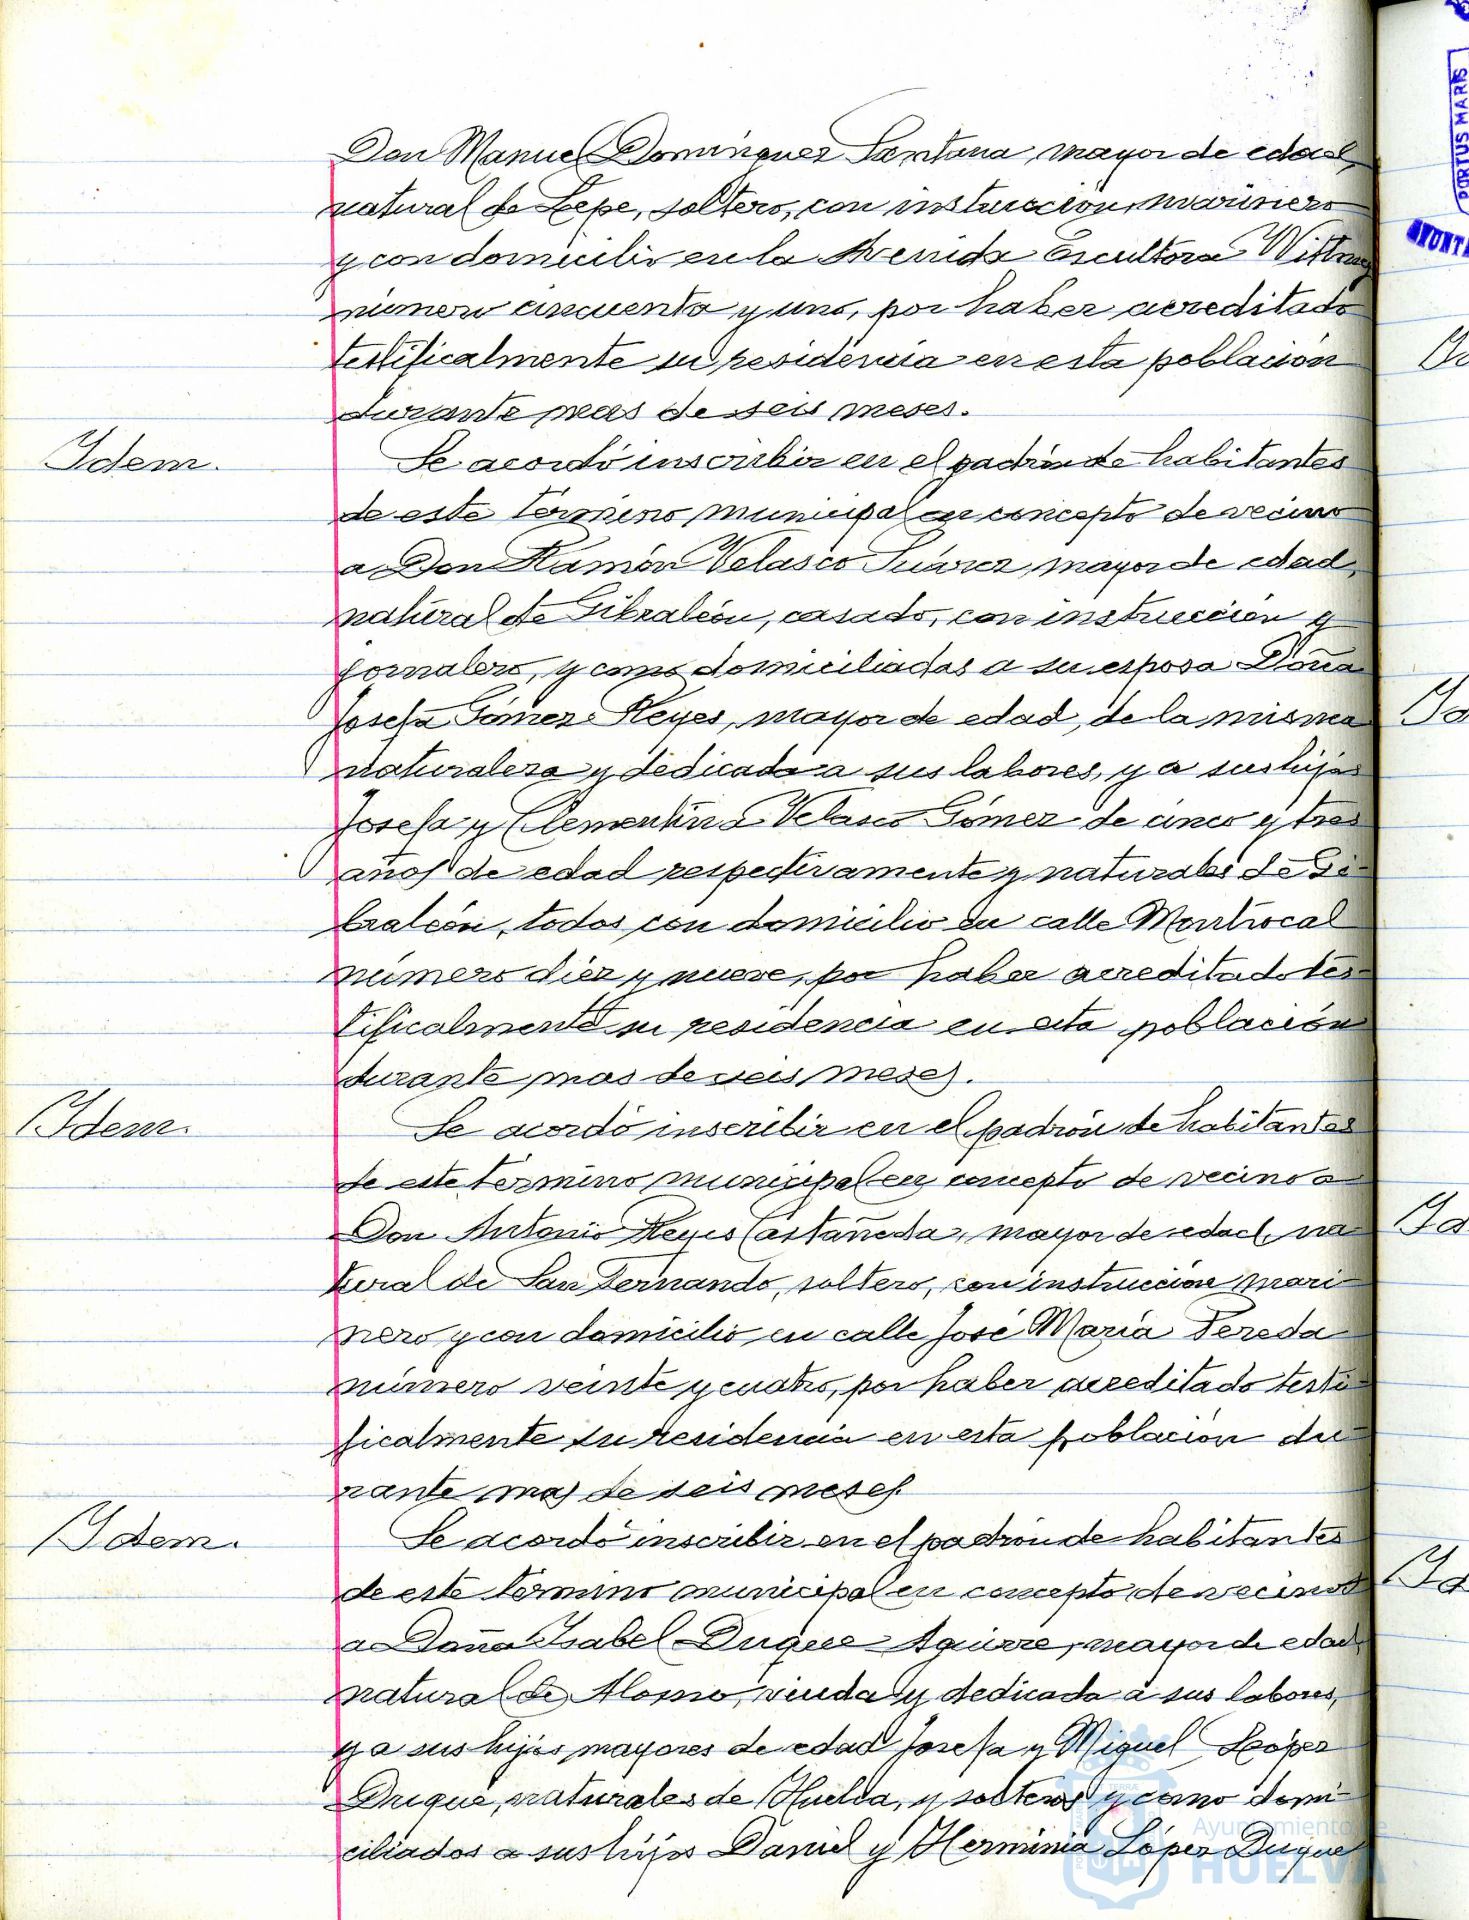 Don Manuel Dominguez Santana, mayor de edad,
natural de Lepe, soltero, con instruccion, marinero
y con domicilio en la Avenida Escultora Witney
número cincuenta y uno, por haber acreditado
testificalmente su residencia en esta población
durante mas de seis meses.
Idem.
Se acordó inscribir en el padrón de habitantes
de este término municipal en concepto de vecino
a Don Ramón Velasco Suárez, mayor de edad,
natural de Gibraleón, casado, con instrucción y
jornalero, y como domiciliadas a su esposa Doña
Josefa Gómez Reyes, mayor de edad, de la misma
naturaleza y dedicada a sus labores, y a sus hijas
Josefa y Clementina Velasco Gómez de cinco y tres
años de edad respectivamente y naturales de Gi-
braleón, todos con domicilio en calle Montrocal
número diez y nueve, por haber acreditado tes-
tificalmente su residencia en esta población
durante mas de seis meses.
Idem.
Se acordó inscribir en el padrón de habitantes
de este término municipal en concepto de vecino a
Don Antonio Reyes Castañeda, mayor de edad, na-
tural de San Fernando, soltero, con instrucción mari-
nero y con domicilio en calle José María Pereda
número veinte y cuatro, por haber acreditado testi-
ficalmente su residencia en esta población du-
rante mas de seis meses.
Idem.
Se acordó inscribir en el padrón de habitantes
de este término municipal en concepto de vecinos
a Doña Isabel Duque Aguirre, mayor de edad,
natural de Alosno, viuda y dedicada a sus labores,
y a sus hijos mayores de edad Josefa y Miguel López
Duque, naturales de Huelva, y solteros y como domi-
ciliados a sus hijos Daniel y Herminia López Duque
PORTUS MARIS
Ayuntamiento de
HUELVA